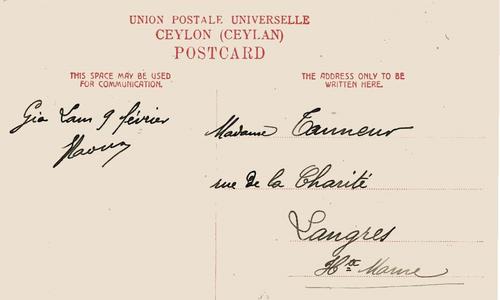 UNION POSTALE UNIVERSELLE
CEYLON (CEYLAN)
POSTCARD
THIS SPACE MAY BE USED
FOR COMMUNICATION.
THE ADDRESS ONLY TO BE
WRITTEN HERE.
Gia Lam 9 février
Madame Tanneur
rue de la Charité
Langres
Hte Marne